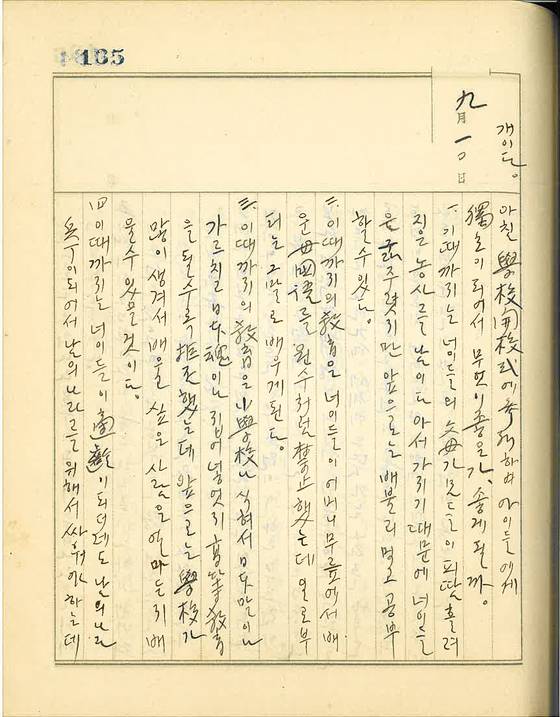 185
개이다。
九月一〇日
아침 學校開校式에 하여 아이들에게
獨立이 되어서 무엇이 좋은가, 좋게 될까。
一. 이때까지는 너이들의 父母가 피땀 흘려
지은 농사를 남이 다 아서 가기 때문에 너이들
을 굶주렷지만 앞으로는 배불리 먹고 공부
할 수 있다。
二. 이때까지의 敎育은 너이들이 어머니 무릎에서 배
운 母國語를 원수처럼 禁止했는데 오늘부
터는 그 말로 배우게 된다。
三. 이때까지의 敎育은 小學校나 식혀서 日本말이나
가르치고 日本魂이나 집어넣엇지 高等敎育
을 될수록 했는데 앞으로는 學校가
많이 생겨서 배우고 싶은 사람은 얼마든지 배
울 수 있을 것이다。
四 이때까지는 너이들이 適齡이 되더래도 남의 나라
이 되어서 남의 나라를 위해서 싸워야 하는데